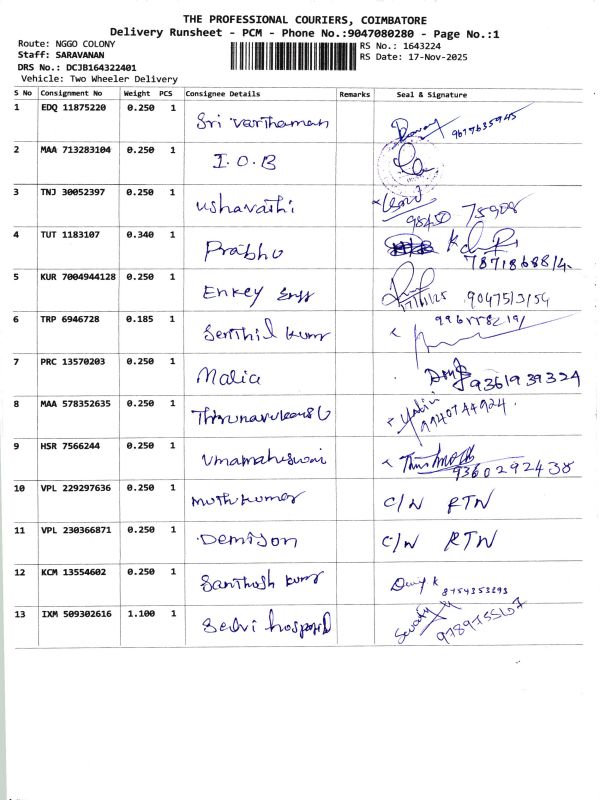 THE PROFESSIONAL COURIERS, COIMBATORE
Delivery Runsheet - PCM - Phone No.:9047080280 - Page No.:1
Route: NGGO COLONY RS No.: 1643224
Staff: SARAVANAN RS Date: 17-Nov-2025
DRS No.: DCJB164322401
Vehicle: Two Wheeler Delivery
S No Consignment No Weight PCS Consignee Details Remarks Seal & Signature
1 EDQ 11875220 0.250 1 Sri Varthaman
2 MAA 713283104 0.250 1 I.O.B
3 TNJ 30052397 0.250 1 ushavathi 98450 75908
4 TUT 1183107 0.340 1 Prabhu 7871868814
5 KUR 7004944128 0.250 1 Enkey Engg 17/11/25 9047513154
6 TRP 6946728 0.185 1 Senthil kumr
7 PRC 13570203 0.250 1 Malia 9361939324
8 MAA 578352635 0.250 1 9940744924
9 HSR 7566244 0.250 1 Umamaheswari 9360292438
10 VPL 229297636 0.250 1 muthkumar C/N RTN
11 VPL 230366871 0.250 1 Demison C/N RTN
12 KCM 13554602 0.250 1 Santhosh kumr 8754353893
13 IXM 509302616 1.100 1 Selvi hospital 9789755167